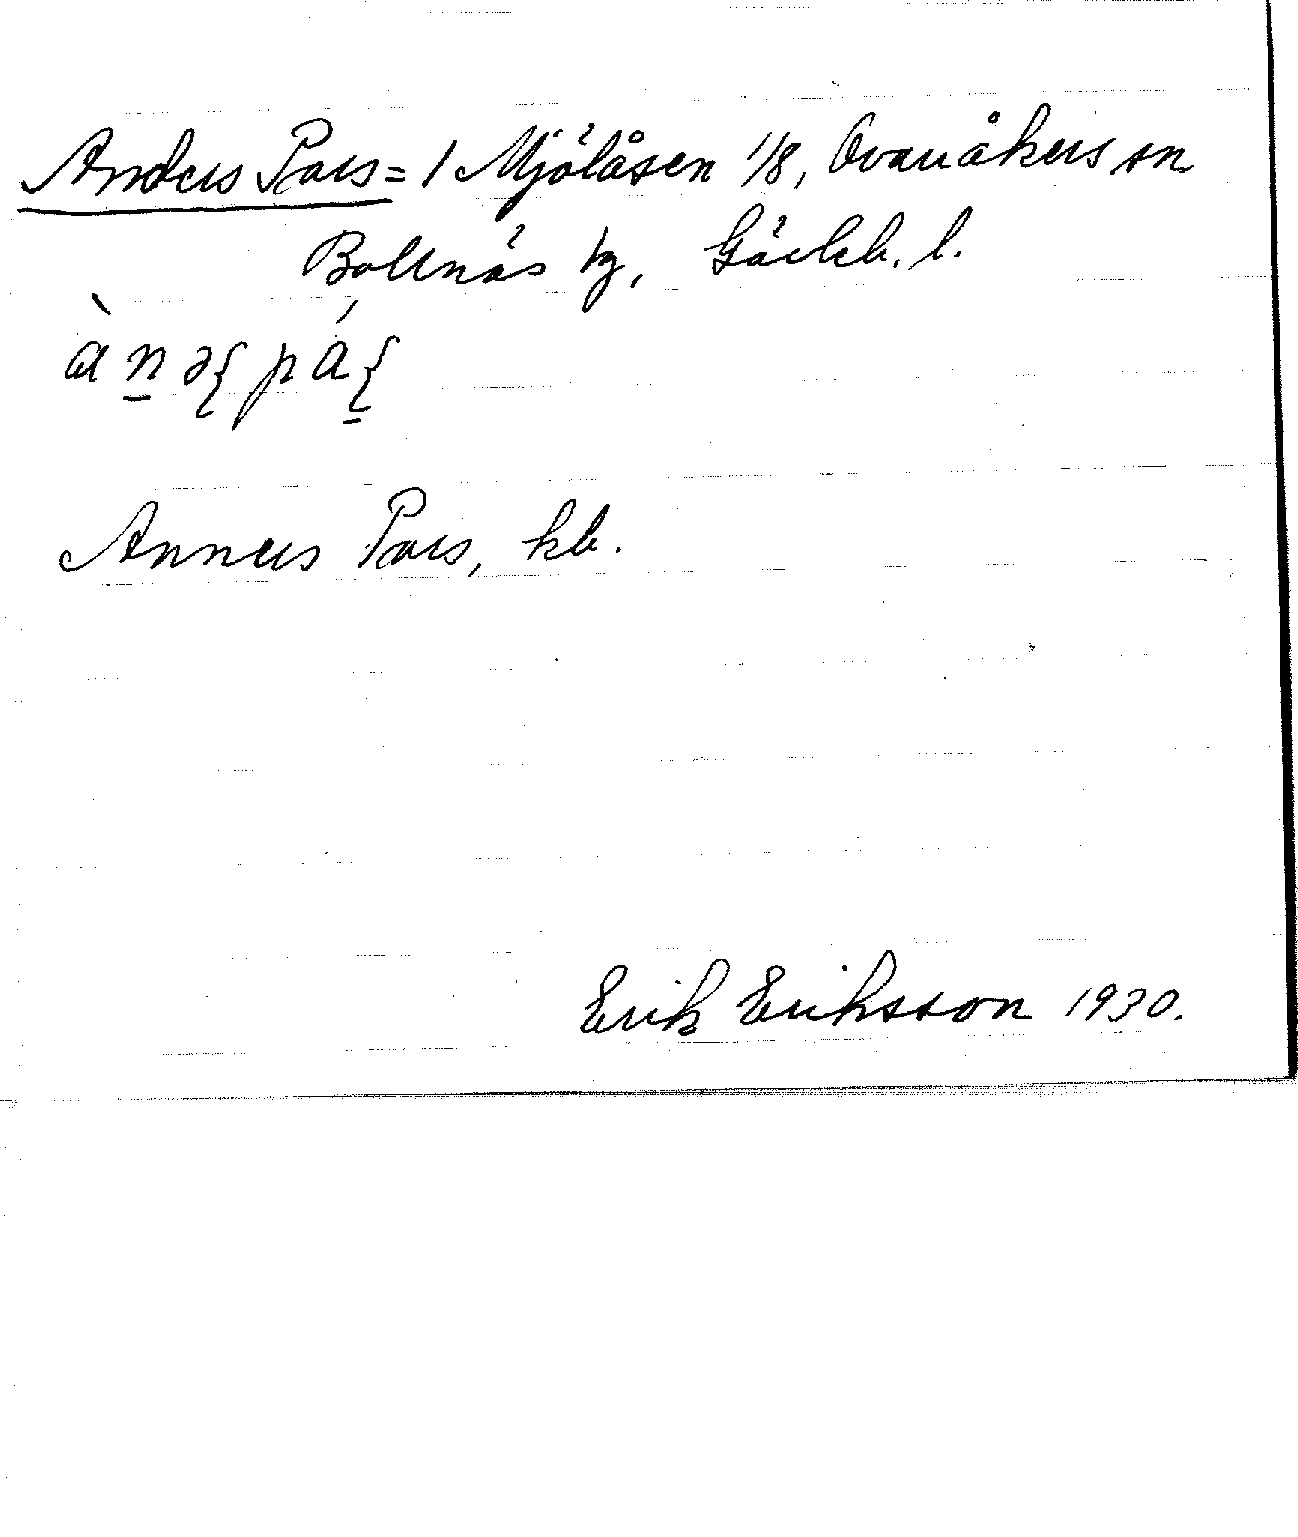 Anders Pars = / Mjölåsen 1/8, Ovanåkers sn
Bollnäs tg, Gävleb. l.
ànəʂpáʂ
Anners Pars, kb.
Erik Eriksson 1930.